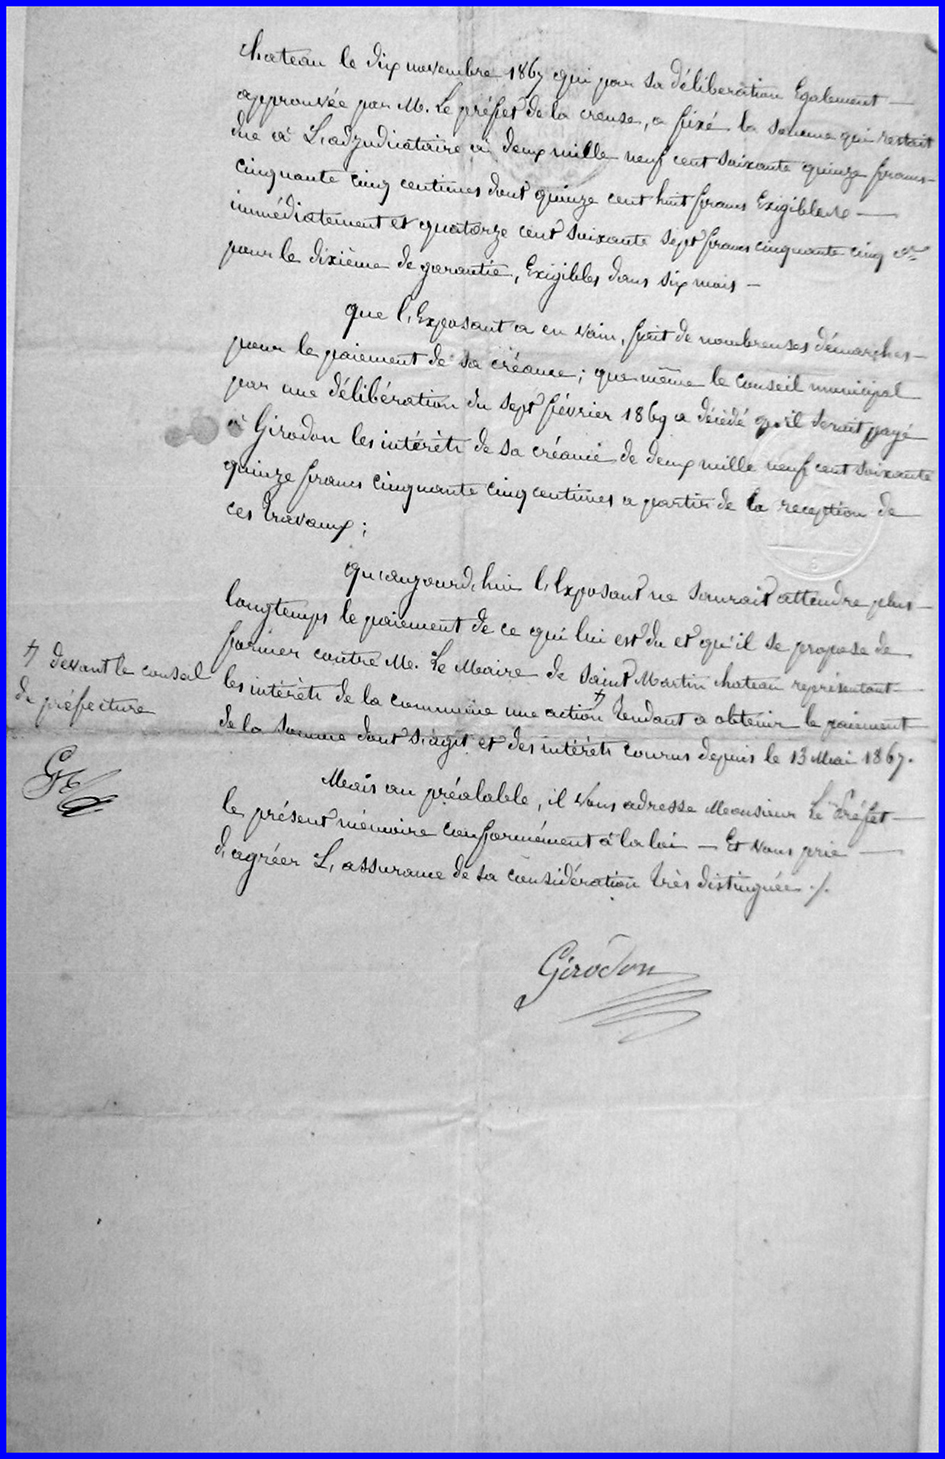 chateau le dix novembre 1867 qui par sa délibération Egalement —
approuvée par M. Le préfet de la creuse, a fixé la somme qui restait
due à L'adjudicataire à deux mille neuf cent soixante quinze francs —
cinquante cinq centimes dont quinze cent huit francs Exigibles —
immédiatement et quatorze cent soixante sept francs cinquante cinq cmes
pour le dixième de garantie, Exigibles dans six mois —
que l'Exposant a en vain, fait de nombreuses démarches —
pour le paiement de sa créance ; que même le conseil municipal
par une délibération du sept février 1869 a décidé qu'il serait payé
à Girodon les intérêts de sa créance de deux mille neuf cent soixante
quinze francs cinquante cinq centimes a partir de la reception de
ces travaux ;
qu'aujourd'hui l'Exposant ne saurait attendre plus —
longtemps le paiement de ce qui lui est du et qu'il se propose de
former contre M. Le Maire de Saint Martin chateau représentant —
les intérêts de la commune une action + tendant a obtenir le paiement
+ devant le conseil
de préfecture
de la somme dont s'agit et des intérêts courus depuis le 13 Mai 1867.
Mais au préalable, il vous adresse Monsieur Le Préfet —
le présent mémoire conformément à la loi — Et vous prie —
d'agréer L'assurance de sa considération très distinguée ./.
Girodon